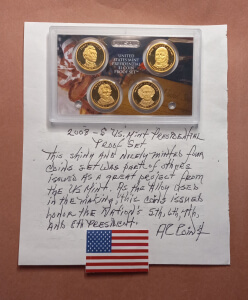 UNITED STATES MINT
PRESIDENTIAL
$1 COIN
PROOF SET
2008-S U.S. Mint Presidential
Proof Set
This shiny and nicely minted four
coins set was part of states
issued as a great project from
the US Mint. As the alloy used
in the making, this coins issued
honor the Nation's 5th, 6th, 7th,
and 8th President.